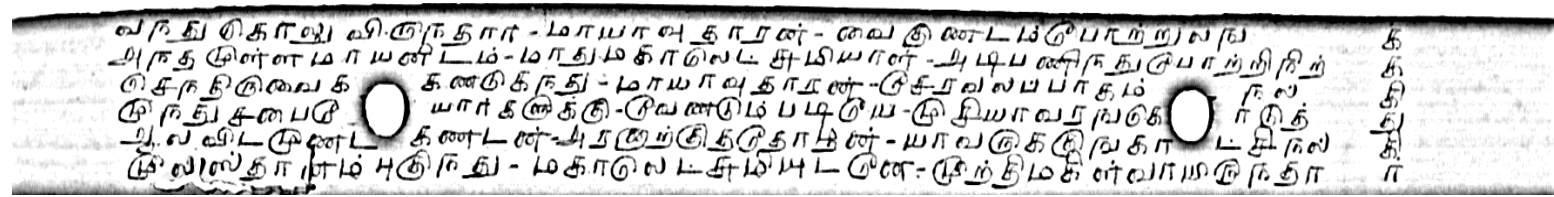 வந்து கொலு விருந்தார் - மாயாவுதாரன் - வைகுண்டம்போற்றுலங் க்
அந்தமுள்ள மாயனிடம் - மாதுமகாலெட்சுமியாள் - அடிபணிந்துபோற்றிநிற் க
செந்திருவைக் கண்டுகந்து - மாயாவுதாரன் - சேரவலப்பாகம் நல் கி
முந்துசபை யார்களுக்கு - வேண்டும்படியே - முசியாவரங்கொடுத் து
ஆலவிடமுண்ட கண்டன் - அரனுற்குதோழன் - யாவருக்குங்காட்சிநல் கி
மூலஸ்தானம்புகுந்து - மகாலெட்சுமியுடனே - முற்றிமகிள்வாயிருந்தா ர்